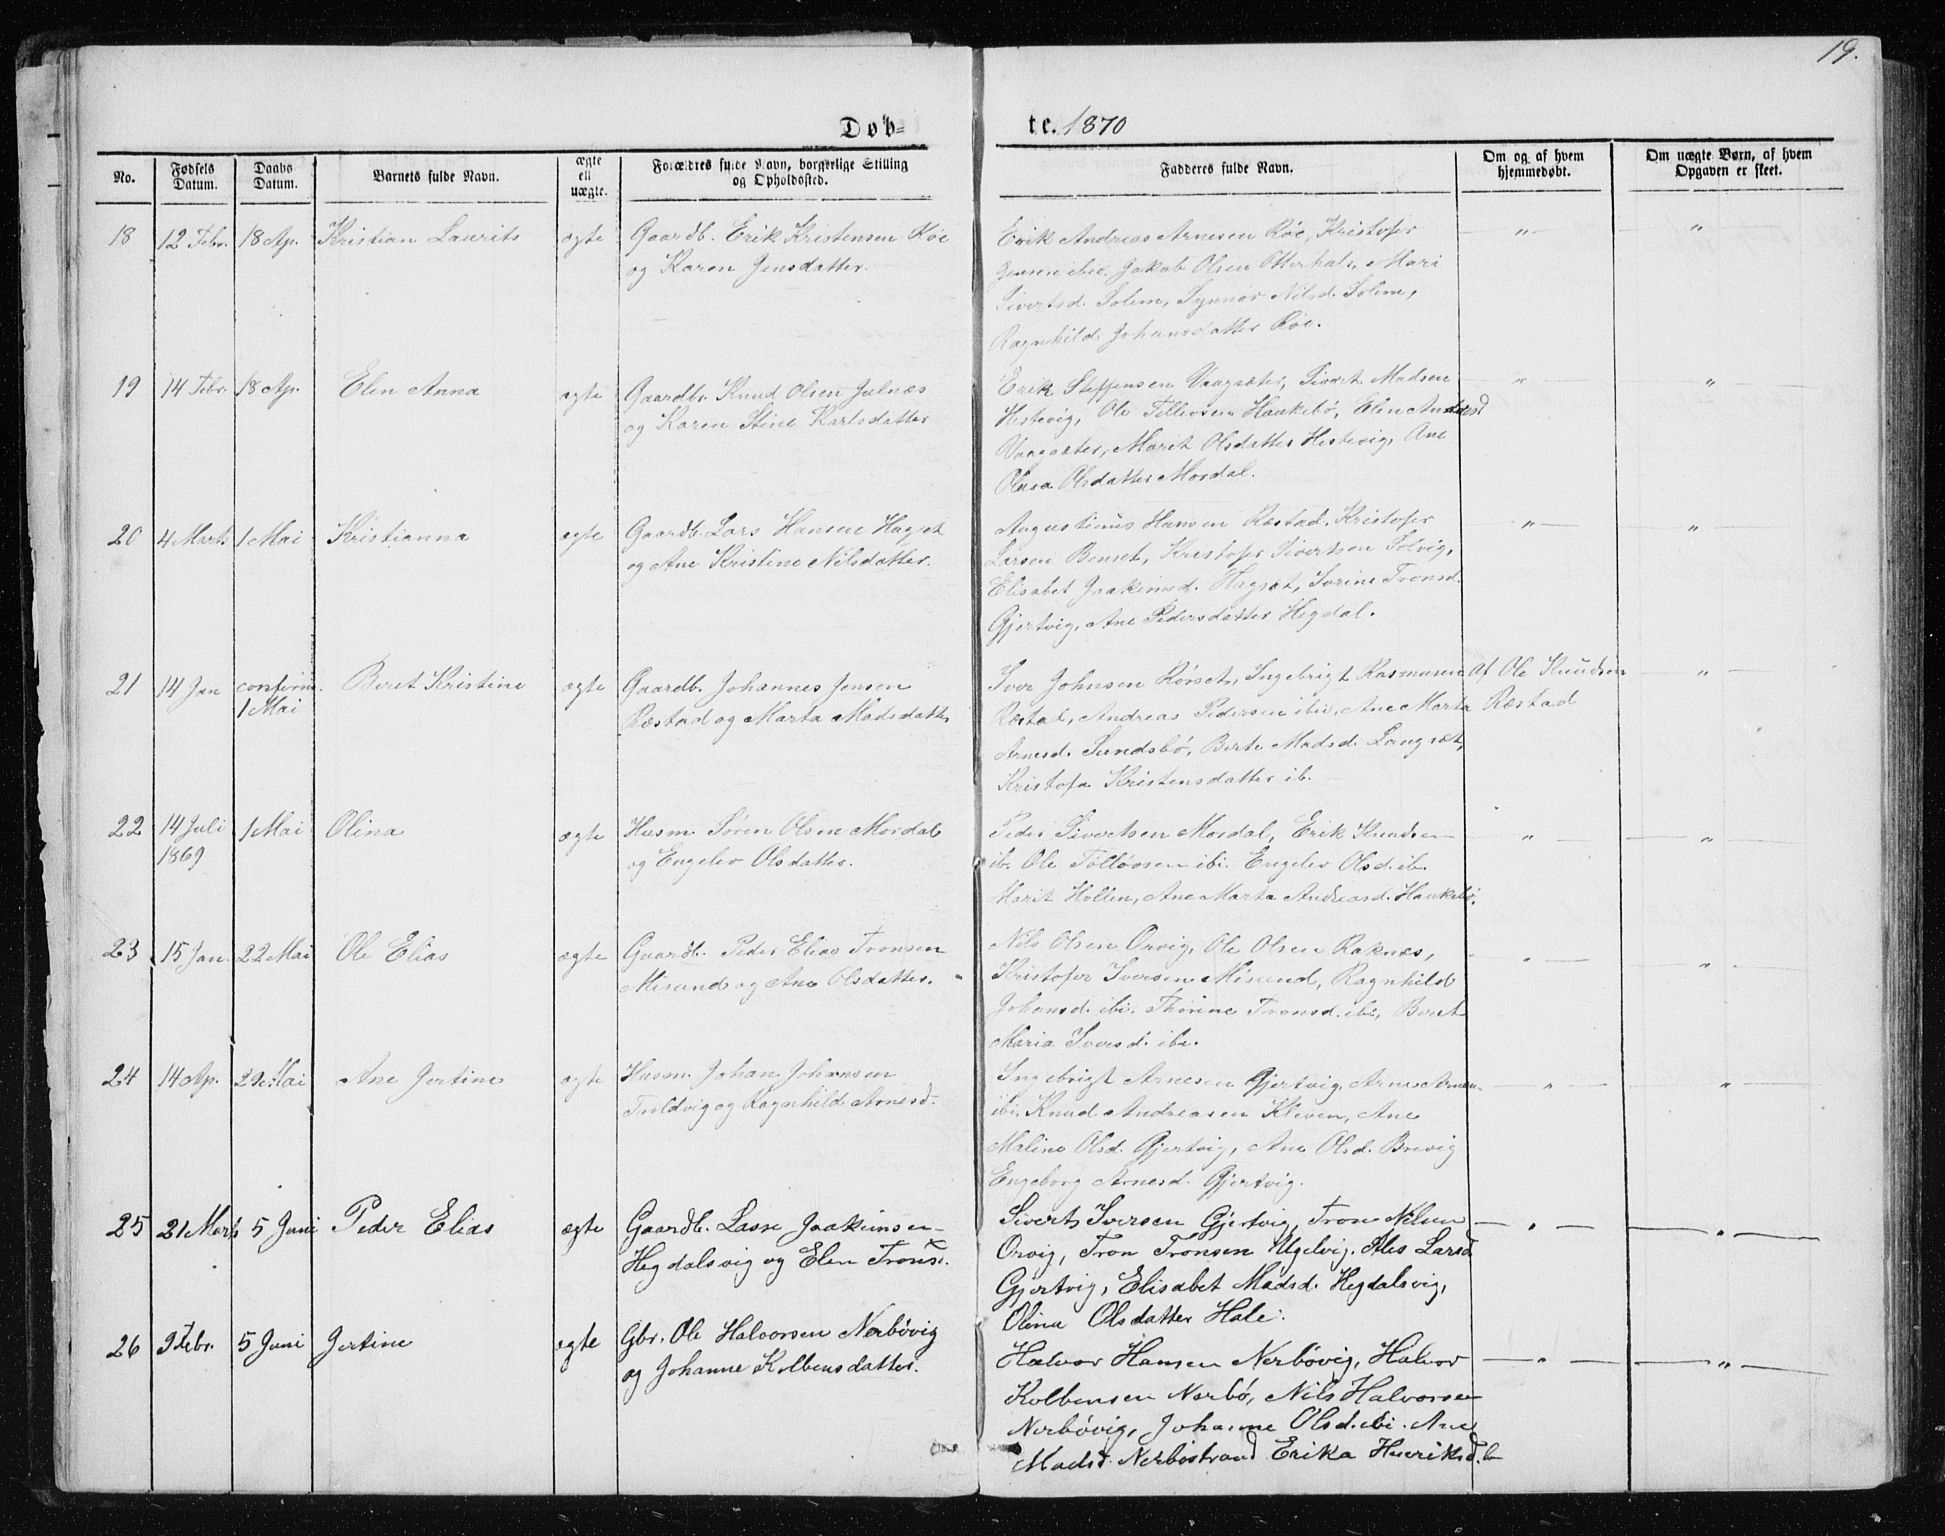 19.
Døb=
te. 1870
No.
Fødsels Datum.
Daabs Datum.
Barnets fulde Navn.
ægte ell uægte.
Forældres fulde Navn, borgerlige Stilling og Opholdssted.
Fadderes fulde Navn.
Om og af hvem hjemmedøbt.
Om uægte Børn, af hvem Opgaven er skeet.
18 12 Febr. 18 Ap. Kristian Laurits ægte Gaardb. Erik Kristensen Röe
og Karen Jensdatter.
Erik Andreas Arnesen Röe, Kristofer
Jensen ibid. Jakob Olsen Otterhals, Mari
Sivertsd. Solem, Synnöv Nilsd. Solem,
Ragnhild Johansdatter Röe.
" "
19 14 Febr. 18 Ap. Elen Anna ægte Gaardbr. Knud Olsen Julnæs
og Karen Stine Karlsdatter
Erik Steffensen Vaagsæter, Sivert Madsen
Hestevig, Ole Tellevsen Haukebö, Elen Andersd
Vaagsæter, Maret Olsdatter Hestevig, Ane
Olava Olsdatter Mordal.
" "
20 4 Marts 1 Mai Kristianna ægte Gaardb. Lars Hansen Hagset
og Ane Kristine Nilsdatter.
Augustinus Hansen Ræstad, Kristofer
Larsen Benset, Kristofer Sivertsen Solvig,
Elisabet Joakimsd. Hagset, Serine Tronsd.
Gjertvig, Ane Pedersdatter Hegdal.
" "
21 14 Jan confirm. 1 Mai Beret Kristine ægte Gaardb. Johannes Jensen
Ræstad og Marta Madsdatter
Iver Johnsen Rörset, Ingebrigt Rasmusen
Ræstad, Andreas Pedersen ibi, Ane Marta
Arnesd. Sundsbö, Berte Madsd. Langset,
Kristofa Kristensdatter ib.
Af Ole Knudsen
Ræstad
"
22 14 Juli 1869 1 Mai Olina ægte Husm. Sören Olsen Mordal
og Engelev Olsdatter.
Peder Sivertsen Mordal, Erik Knudsen
ib. Ole Tollevsen ibi. Engelev Olsd. ib.
Marit Hollen, Ane Marta Andreasd. Haukebö.
" "
23 15 Jan. 22 Mai Ole Elias ægte Gaardb. Peder Elias Tronsen
Misund og Ane Olsdatter.
Nils Olsen Orvig, Ole Olsen Raknæs,
Kristofer Iversen Misund, Ragnhild
Johansd. ibi. Thorine Tronsd. ibi, Beret
Maria Iversd. ibi.
" "
24 14 Ap. 22 Mai Ane Jertine ægte Husm. Johan Johansen
Troldvig og Ragnhild Arnesd.
Ingebrigt Arnesen Gjertvig, Arne Arnesen
ibi. Knud Andreasen Kleven, Ane
Malene Olsd. Gjertvig, Ane Olsd. Brevig
Engeborg Arnesd. Gjertvig.
" "
25 21 Marts 5 Juni Peder Elias ægte Gaardb. Lasse Joakimsen
Hegdalsvig og Elen Tronsd.
Siverts Iversen Gjertvig, Tron Nilsen
Orvig, Tron Tronsen Ugelvig. Ales Larsd
Gjertvig, Elisabet Madsd. Hegdalsvig,
Olina Olsdatter Hale.
" "
26 9 Febr. 5 Juni Jertine ægte Gbr. Ole Halvorsen Nerbövig
og Johanne Kolbensdatter.
Halvor Hansen Nerbövig, Halvor
Kolbensen Nerbö, Nils Halvorsen
Nerbövig, Johanne Olsd. ibi. Ane
Madsd. Nerböstrand Erika Henriksd. ib
" "